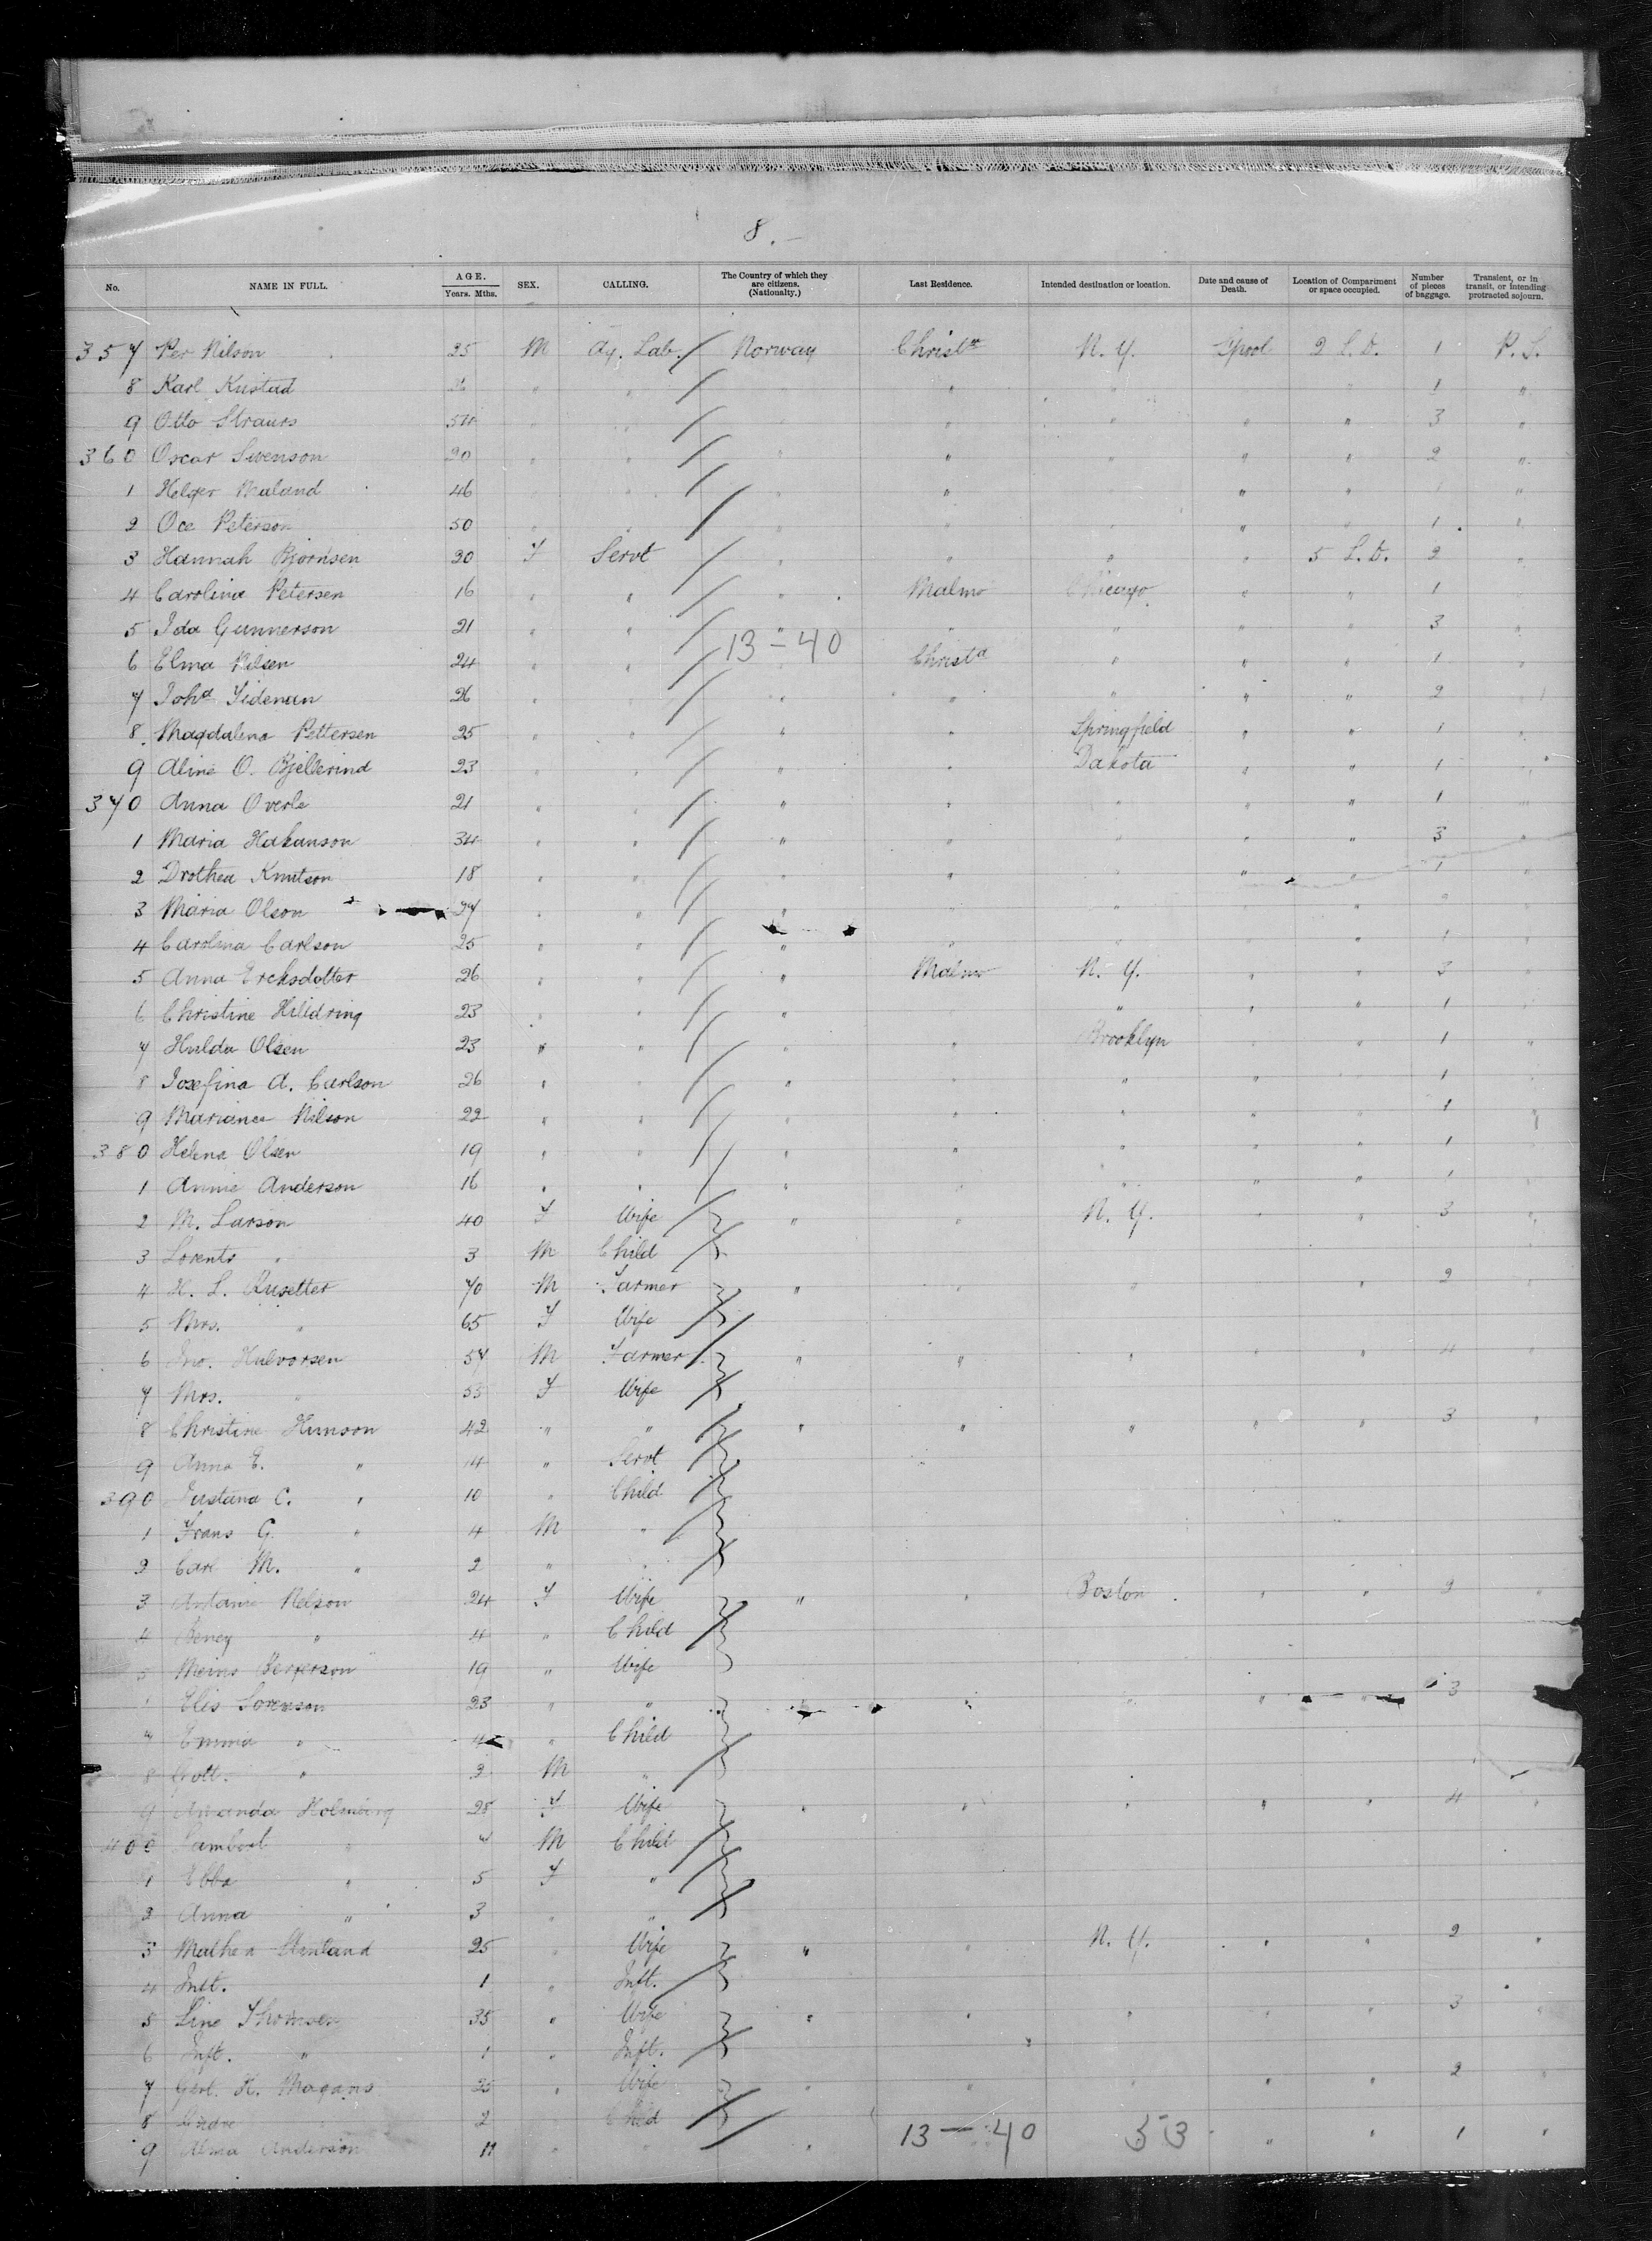 8.
No. NAME IN FULL. AGE. Years. Mths. SEX. CALLING. The Country of which they are citizens. (Nationalty.) Last Residence. Intended destination or location. Date and cause of Death. Location of Compartment or space occupied. Number of pieces of baggage. Transient, or in transit, or intending protracted sojourn.
357 Per Nilson 25 M Ag. Lab. Norway Christa N. Y. Lpool 2 S.D. 1 P. S.
8 Karl Kristad " " " " 1 "
9 Otto Strauss 54 " " " " " " 3 "
360 Oscar Swenson 20 " " " " " " " 2 "
1 Helger Maland 46 " " " " "
2 Oce Peterson 50 " " " 1 "
3 Hannah Bjornsen 20 F Servt " " " " 5 S.D. 2 "
4 Carolina Petersen 16 " " " Malmo Chicago " " 1
5 Ida Gunnerson 21 " " " " " " " 3 "
13-40
6 Elma Nilsen 24 " " Christa " " " 1 "
7 Joha Tideman 26 " " " " " " 2
8 Magdalena Pettersen 25 " " " " Springfield " " 1 "
9 Aline O. Bjellerind 23 " " " " Dakota " " 1 "
370 Anna Overle 21 " " " " " " " 1 "
1 Maria Hakanson 34 " " " " " " " 3 "
2 Drothea Knutson 18 " " " " " " " 1 "
3 Maria Olson 27 " " " " " " " "
4 Carolina Carlson 25 " " " " " " 1 "
5 Anna Ercksdotter 26 " " " Malmo N. Y. " " 3 "
6 Christine Hilldring 23 " " " " " " 1 "
7 Hulda Olsen 23 " " " " Brooklyn " " 1 "
8 Josefina A. Carlson 26 " " " " " " " 1 "
9 Marianes Nilson 22 " " " " " " " 1 "
380 Helena Olsen 19 " " " " " " " 1 "
1 Annie Anderson 16 " " " " " " 1 "
2 M. Larson 40 F Wife " " N. Y. " " 3 "
3 Lorents " 3 M Child
4 H. L. Rusetter 70 M Farmer " " " " 2
5 Mrs. " 65 F Wife
6 Jno. Halvorsen 57 M Farmer " " " " " 4 "
7 Mrs. " 53 F Wife
8 Christine Hunson 42 " " " " " " " 3 "
9 Anna E. " 14 " Servt
390 Justana C. " 10 " Child
1 Frans G. " 4 M "
2 Carl M. " 2 " "
3 Antanie Nelson 24 F Wife " " Boston " " 2 "
4 " 4 " Child
5 19 " Wife
Elis Sorenson 23 " " " " " " " 3
Emma " 4 " Child
8 " 3 M "
9 Amanda Holmberg 28 F Wife " " " " " 4 "
400 " 7 M Child
1 Ebba " 5 F "
2 Anna " 3 " "
3 Mathea 25 " Wife " " N. Y. " " 2 "
4 Inft. 1 " Inft.
5 Line Thomsen 35 " Wife " " " " " 3 "
6 Inft. " 1 " Inft.
7 H. Magans 25 " Wife " " " " " 2 "
8 2 Child
9 Alma Anderson 11 " " " 13-40 53 " " 1 "